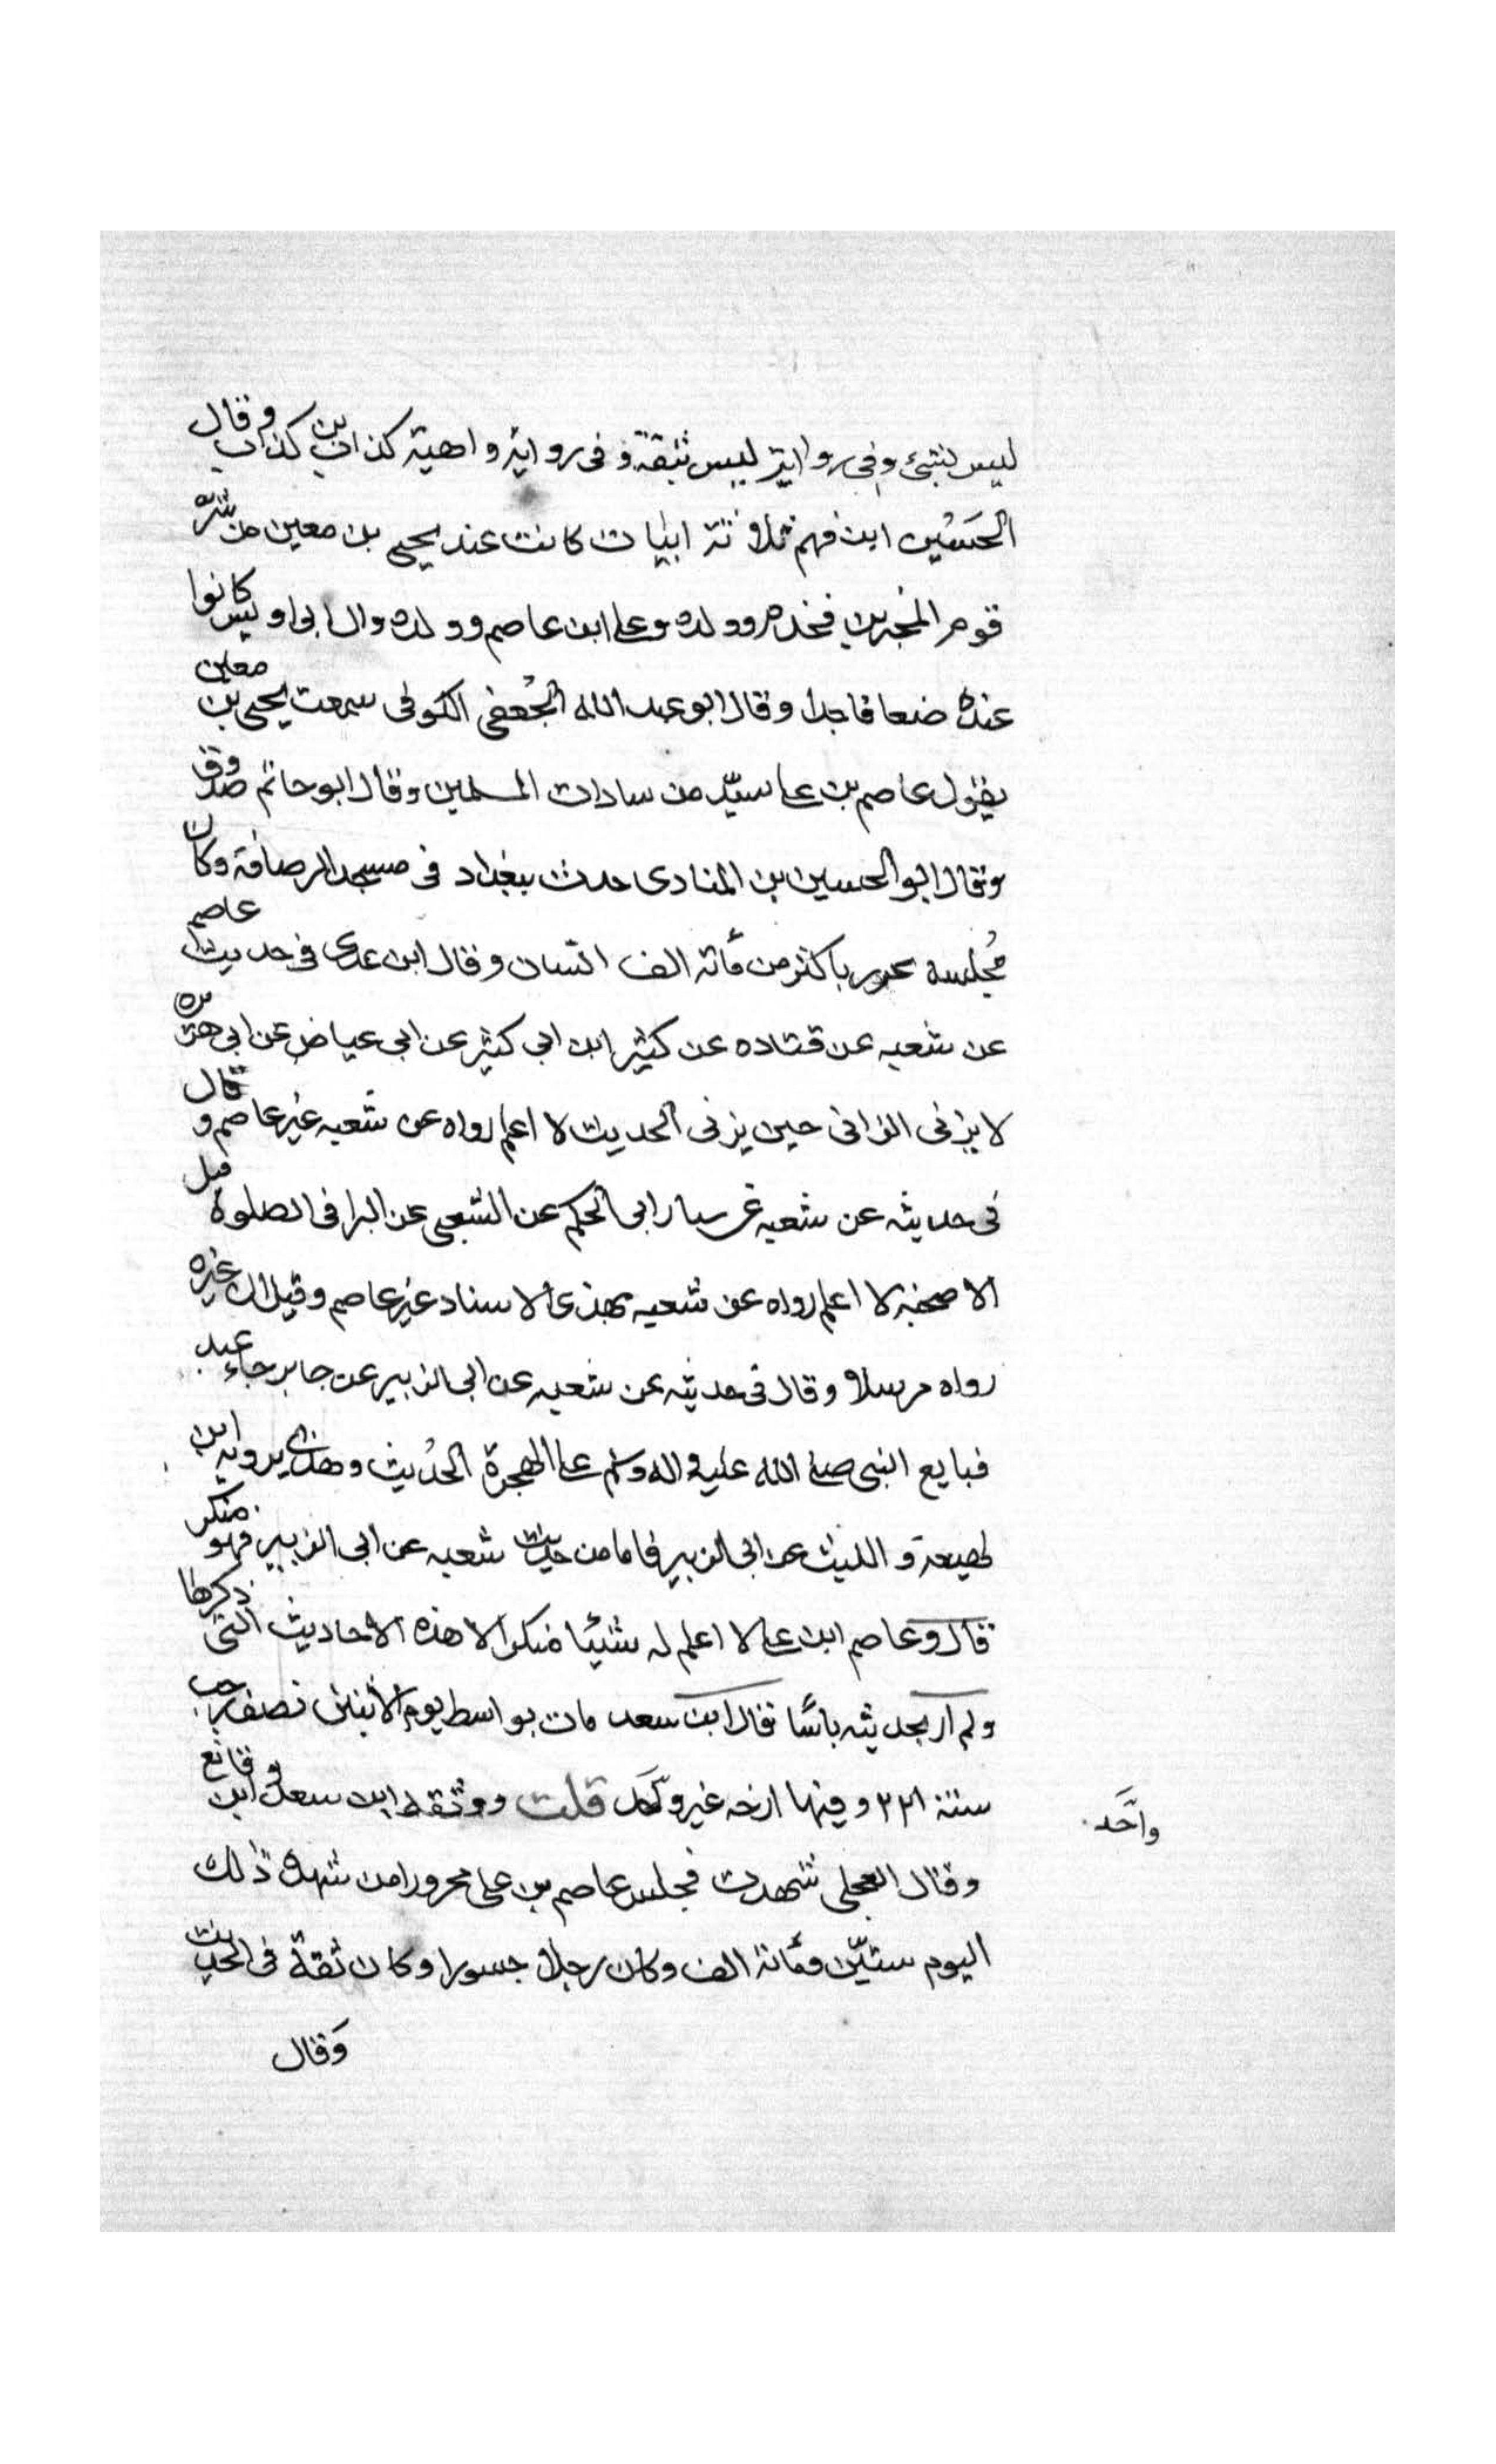 ليس بشئ وفى رواية ليس بثقة وفى رواية واهية كذاب بن كذاب وقال
الحَسُين ابن فهم ثلاثة ابيات كانت عند يحيى بن معين من شره
قوم المخبرين ولده وعلى ابن عاصم وولده وال ابى اويس كانوا
عنده ضعافا جدا وقال ابو عبد الله الجُعفى الكوفى سمعت يحيى بن معين
يقول عاصم بن على سيّد من سادات المسلمين وقال ابو حاتم صدوق
وقال ابو الحسين بن المنادى حدث ببغداد فى مسجد الرصافة وكان
مُجلسه باكثر من مأته الف انسان وقال ابن عدى فى حديث عاصم
عن شعبه عن قتاده عن كثير ابن ابى كثير عن ابى عياض عن ابى هريره
لا يزنى الزانى حين يزنى الحديث لا اعلم رواه عن شعبه غير عاصم وقال
فى حديثه عن شعبه عن سيار ابى الحكم عن الشعبى عن البرا فى الصلوة قبل
الاضحية لا اعلم رواه عن شعبه بهذى الاسناد غير عاصم وقيل ان غيره
رواه مرسلا وقال فى حديثه عن شعبه عن ابى الزبير عن جابر جاء عبد
فبايع النبى صلى الله عليه واله وسلم على الهجرة الحُديث وهذى يرويه ابن
لهيعة و الليث عن ابى الزبير فاما من حديث شعبه عن ابى الزبير فهو منكر
قال وعاصم ابن على لا اعلم له شئيا منكرا الا هذه الاحاديث التى ذكرها
ولم ار بحديثه بأسا قال ابن سعد مات بواسط يوم الاثنين نصف رجب
سنة ٢٢١ وفيها ارخه غير وَاحَد قلت ووثقه ابن سعد وابن قانع
واَحَد
وقال العجلى شهدت مجلس عاصم بن على محرورا من شهد ذلك
اليوم ستيّن ومأته الف وكان رجلا جسورا وكان ثقة فى الحديث
وَقال